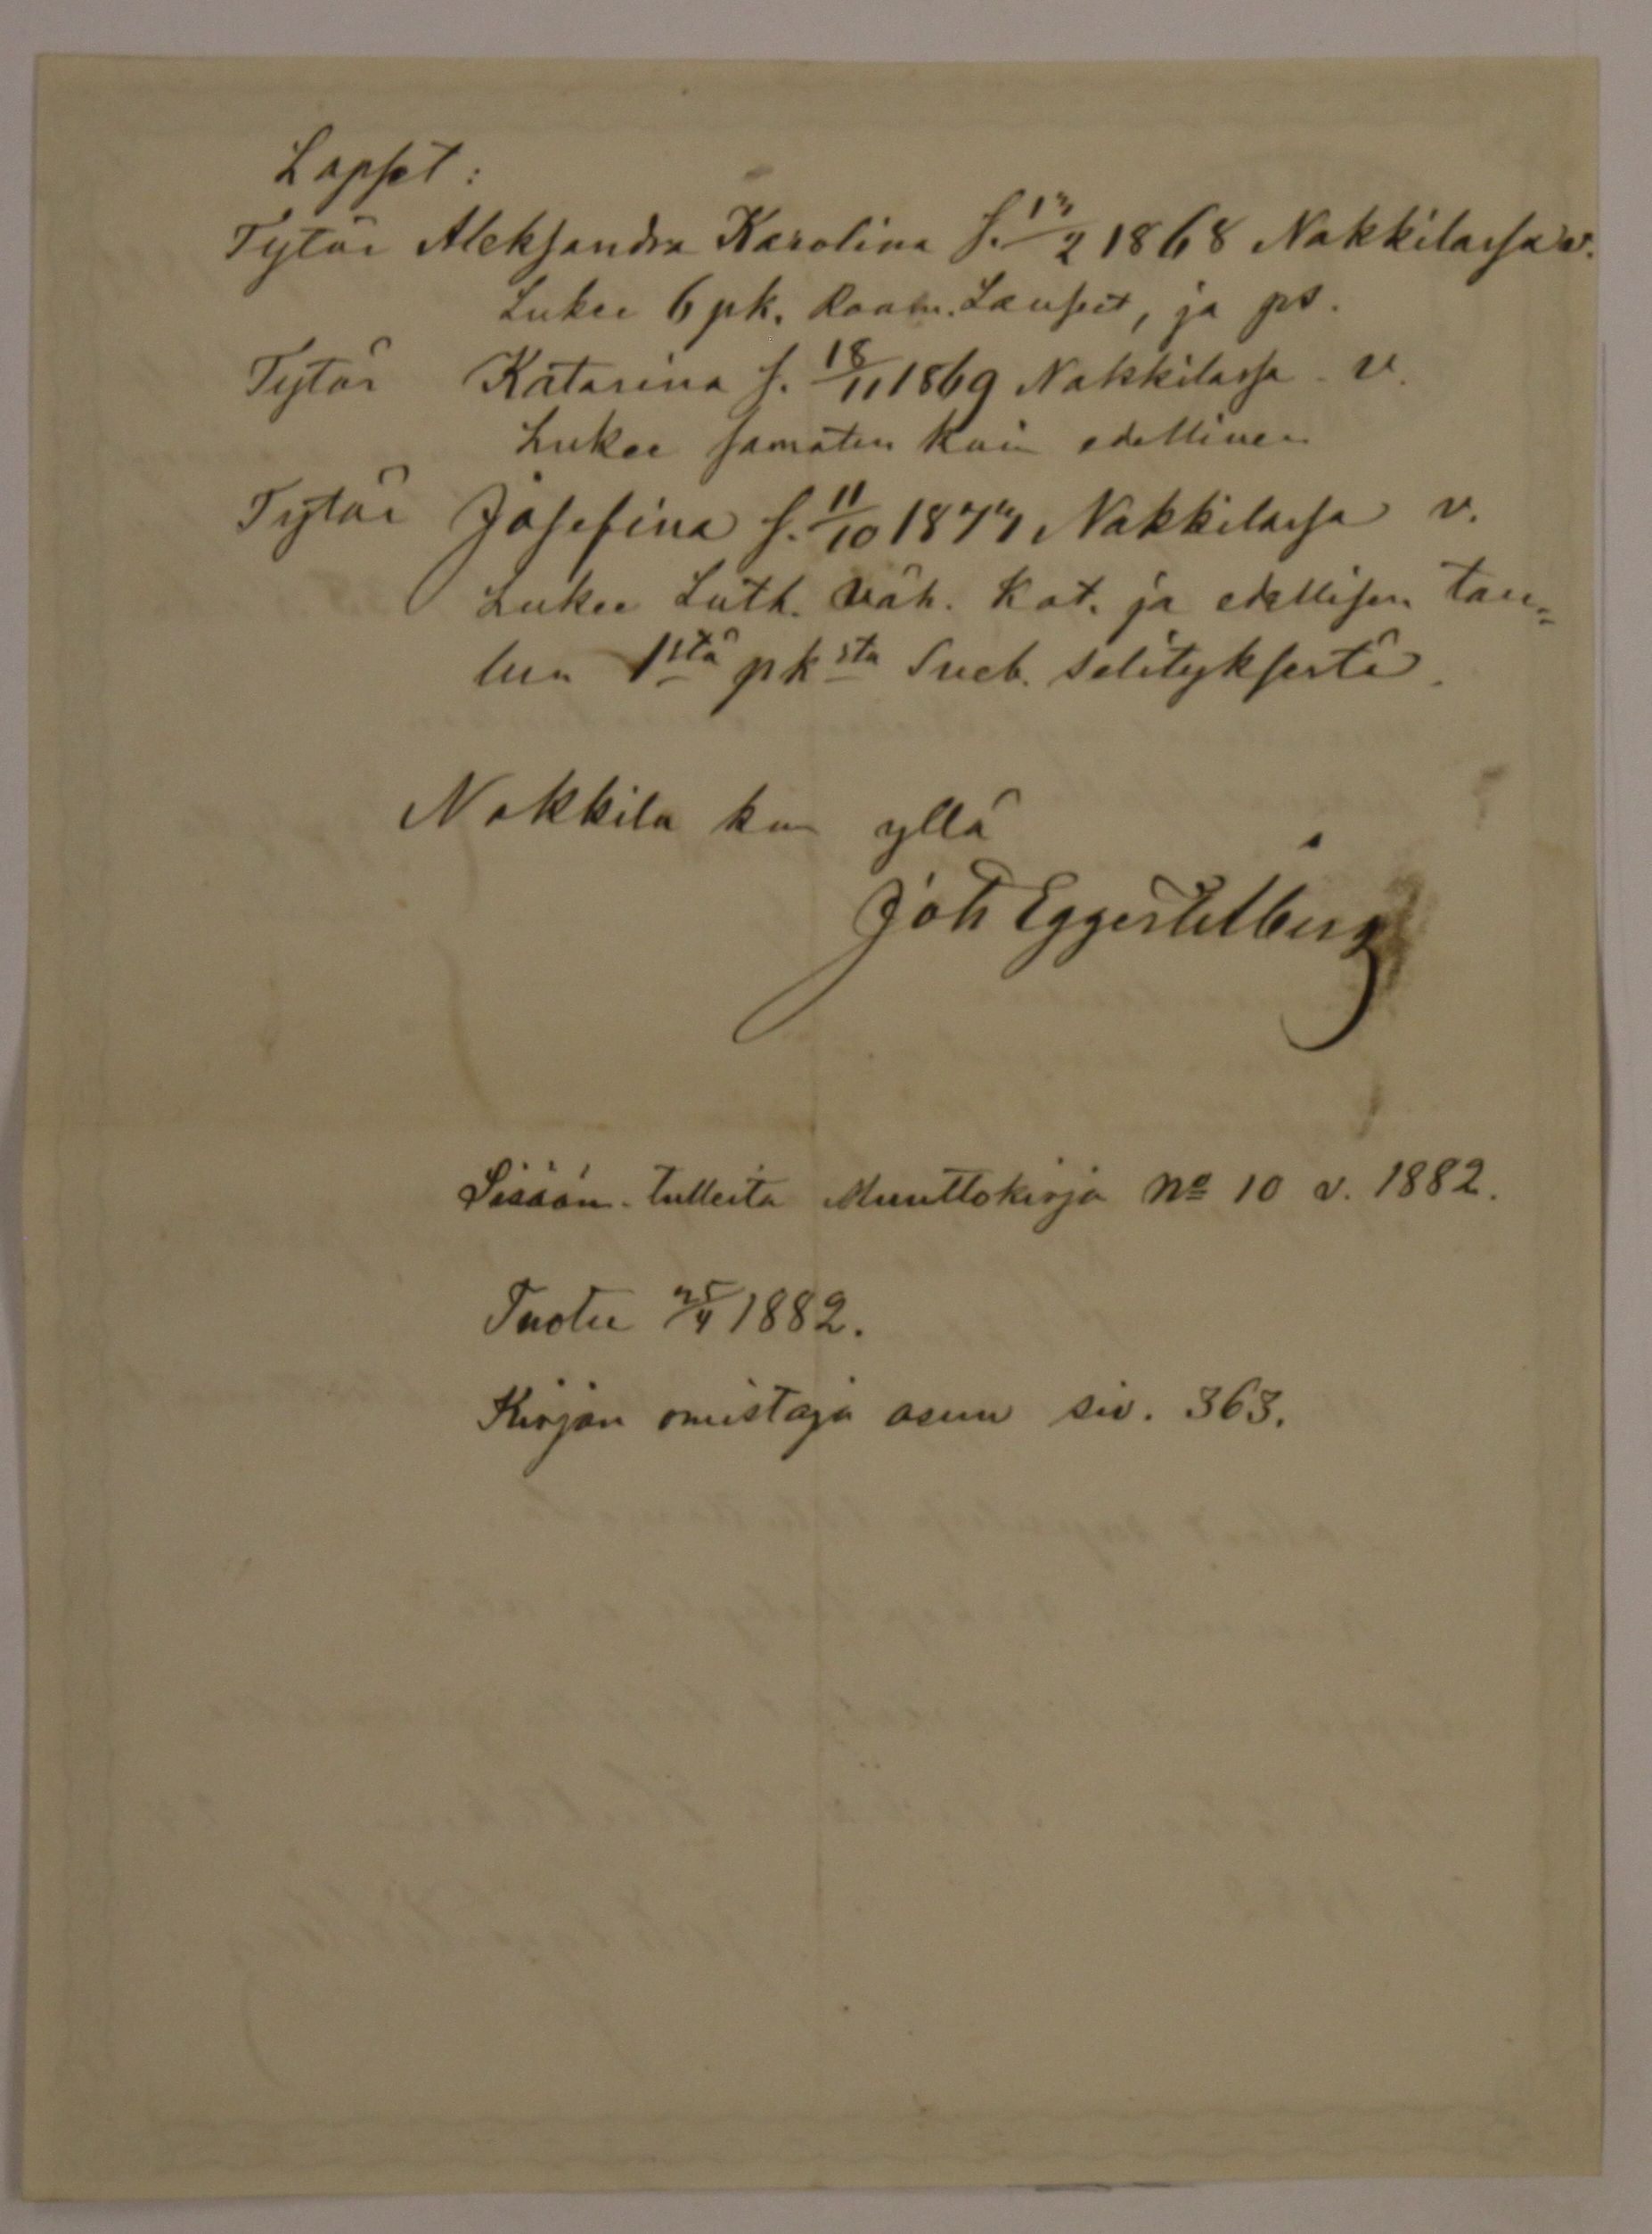 Lapset:
Tytär Aleksandra Karolina s. 17/2 1868 Nakkilassa v.
Lukee 6 pk. Raam. Lauseet, ja ps.
Tytär Katarina s. 18/11 1869 Nakkilassa v.
Lukee samaten kuin edellinen
Tytär Josefina s. 11/10 1877 Nakkilassa v.
Lukee Luth. väh. Kat. ja edellisen tau=
lun 1stä pksta Sveb. selityksestä.
Nakkila kun yllä
Joh Eggert
Sisään-tulleita Muuttokirja No 10 v. 1882.
Tuotu 25/4 1882.
Kirjan omistaja asuu siv. 363.